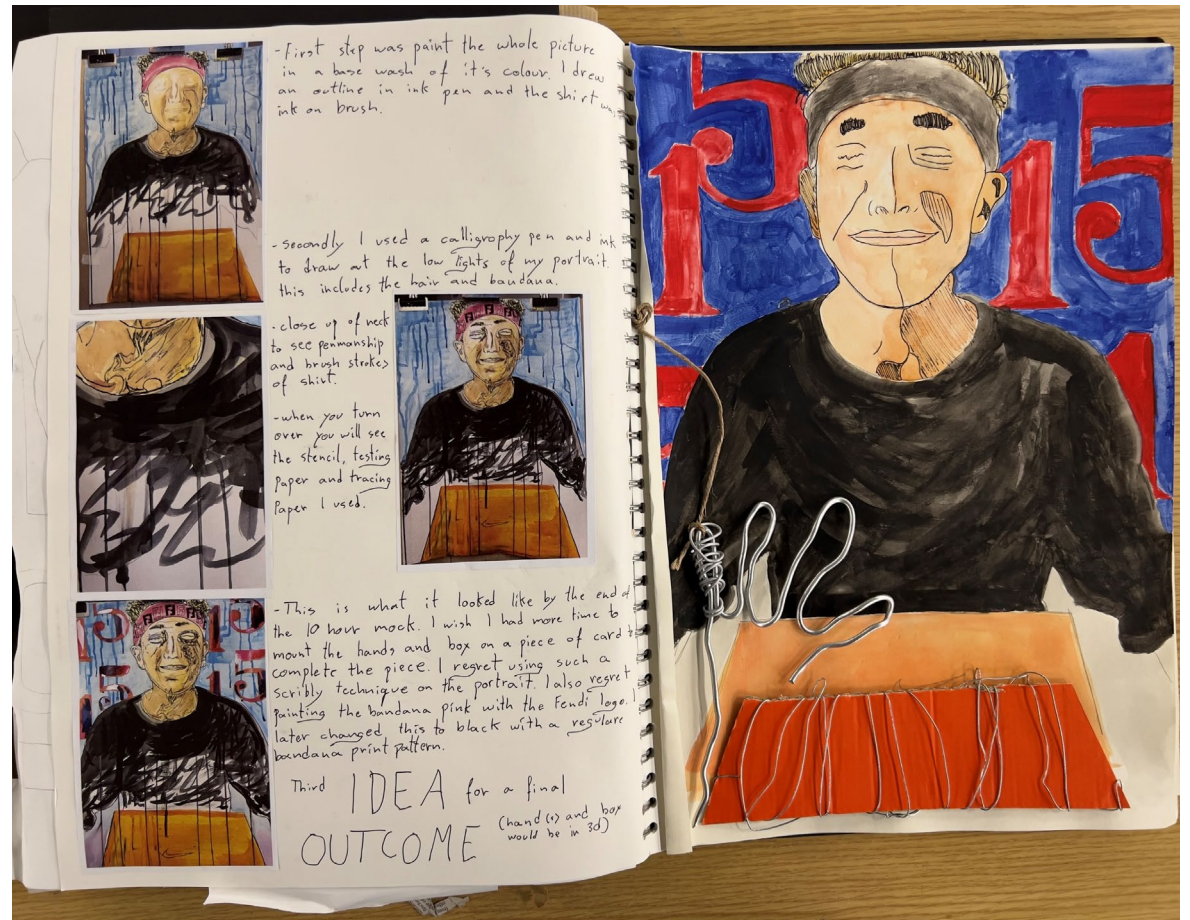 -First step was paint the whole picture
in a base wash of it's colour. I drew
an outline in ink pen and the shirt was
ink on brush.
-Secondly I used a calligrophy pen and ink
to draw out the low lights of my portrait.
this includes the hair and bandana.
-close up of neck
to see penmanship
and brush strokes
of shirt.
-when you turn
over you will see
the stencil, testing
paper and tracing
paper I used.
-This is what it looked like by the end of
the 10 hour mock. I wish I had more time to
mount the hands and box on a piece of card to
complete the piece. I regret using such a
scribly technique on the portrait. I also regret
painting the bandana pink with the Fendi logo. I
later changed this to black with a regulare
bandana print pattern.
Third IDEA for a final
OUTCOME (hand(s) and box
would be in 3d)
15 15
1
15 15
15